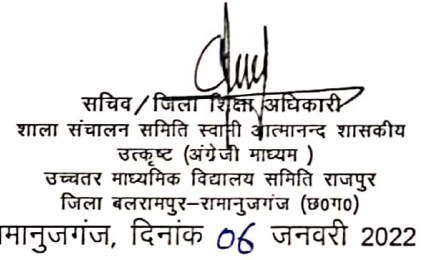 सचिव/जिला शिक्षा अधिकारी
शाला संचालन समिति स्वामी आत्मानन्द शासकीय
उत्कृष्ट (अंग्रेजी माध्यम )
उच्चतर माध्यमिक विद्यालय समिति राजपुर
जिला बलरामपुर–रामानुजगंज (छ०ग०)
मानुजगंज, दिनांक 06 जनवरी 2022